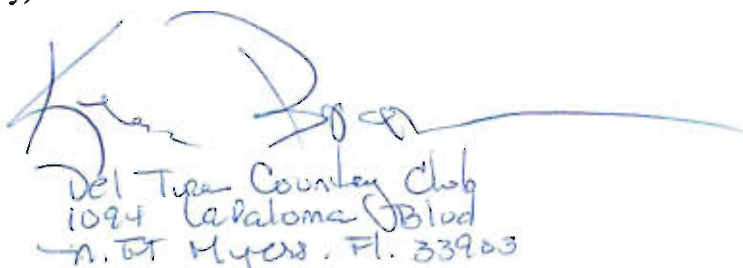 y,
Del Tura Country Club
1094 LaPaloma Blvd
N. Ft Myers. Fl. 33903